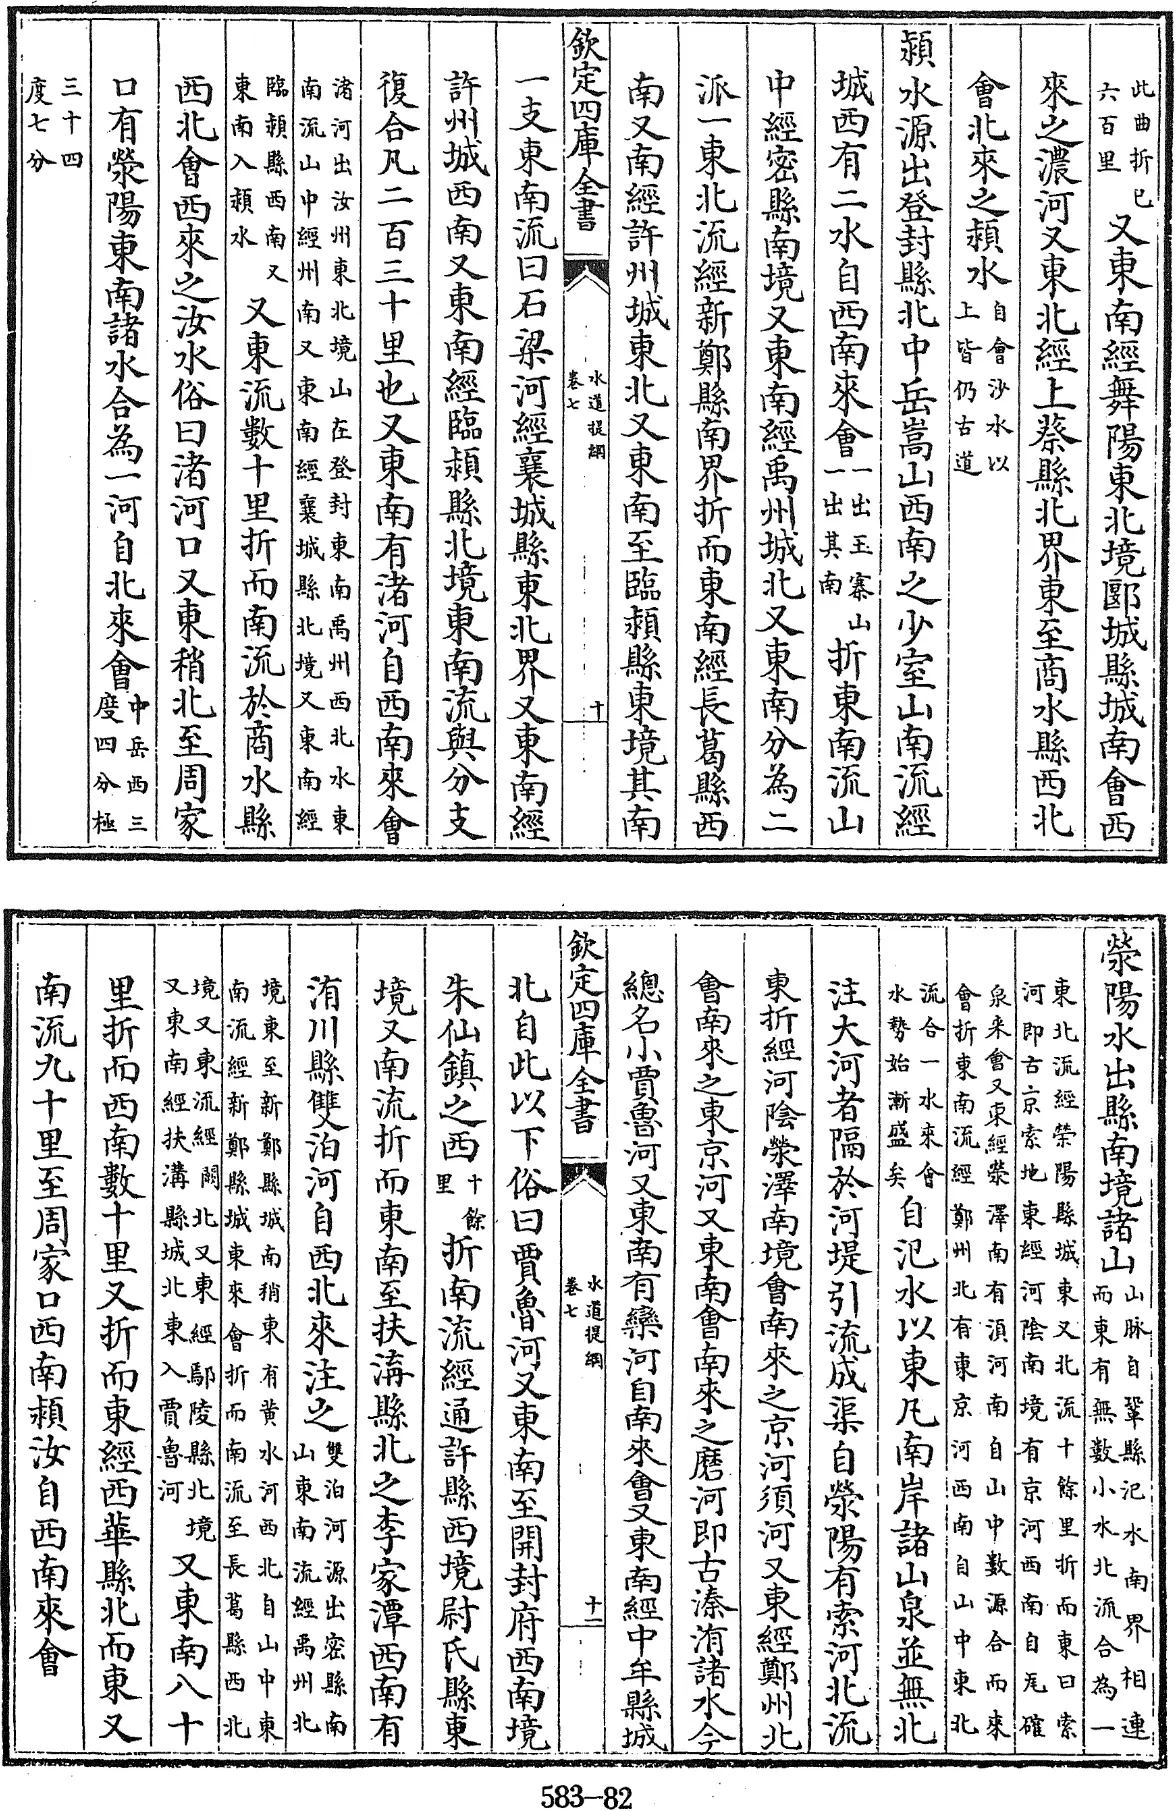 此曲折已
六百里
又東南經舞陽東北境郾城縣城南會西
來之濃河又東北經上蔡縣北界東至商水縣西北
會北來之潁水
自會沙水以
上皆仍古道
潁水源出登封縣北中岳嵩山西南之少室山南流經
城西有二水自西南來會
一出玉寨山
一出其南
折東南流山
中經密縣南境又東南經禹州城北又東南分為二
派一東北流經新鄭縣南界折而東南經長葛縣西
南又南經許州城東北又東南至臨潁縣東境其南
欽定四庫全書
水道提綱
卷七
十
一支東南流曰石梁河經襄城縣東北界又東南經
許州城西南又東南經臨潁縣北境東南流與分支
復合凡二百三十里也又東南有渚河自西南來會
渚河出汝州東北境山在登封東南禹州西北水東
南流山中經州南又東南經襄城縣北境又東南經
臨潁縣西南又
東南入潁水
又東流數十里折而南流於商水縣
西北會西來之汝水俗曰渚河口又東稍北至周家
口有滎陽東南諸水合為一河自北來會
中岳西三
度四分極
三十四
度七分
滎陽水出縣南境諸山
山脉自鞏縣汜水南界相連
而東有無數小水北流合為一
東北流經滎陽縣城東又北流十餘里折而東曰索
河即古京索地東經河陰南境有京河西南自尾確
泉來會又東經滎澤南有湏河南自山中數源合而來
會折東南流經鄭州北有東京河西南自山中東北
流合一水來會
水勢始漸盛矣
自汜水以東凡南岸諸山泉並無北
注大河者隔於河堤引流成渠自滎陽有索河北流
東折經河陰滎澤南境會南來之京河須河又東經鄭州北
會南來之東京河又東南會南來之磨河即古溱洧諸水今
總名小賈魯河又東南有欒河自南來會又東南經中牟縣城
欽定四庫全書
水道提綱
卷七
十一
北自此以下俗曰賈魯河又東南至開封府西南境
朱仙鎮之西
十餘
里
折南流經通許縣西境尉氏縣東
境又南流折而東南至扶溝縣北之李家潭西南有
洧川縣雙洎河自西北來注之
雙洎河源出密縣南
山東南流經禹州北
境東至新鄭縣城南稍東有黄水河西北自山中東
南流經新鄭縣城東來會折而南流至長葛縣西北
境又東流經闗北又東經鄢陵縣北境
又東南經扶溝縣城北東入賈魯河
又東南八十
里折而西南數十里又折而東經西華縣北而東又
南流九十里至周家口西南潁汝自西南來會
583-82